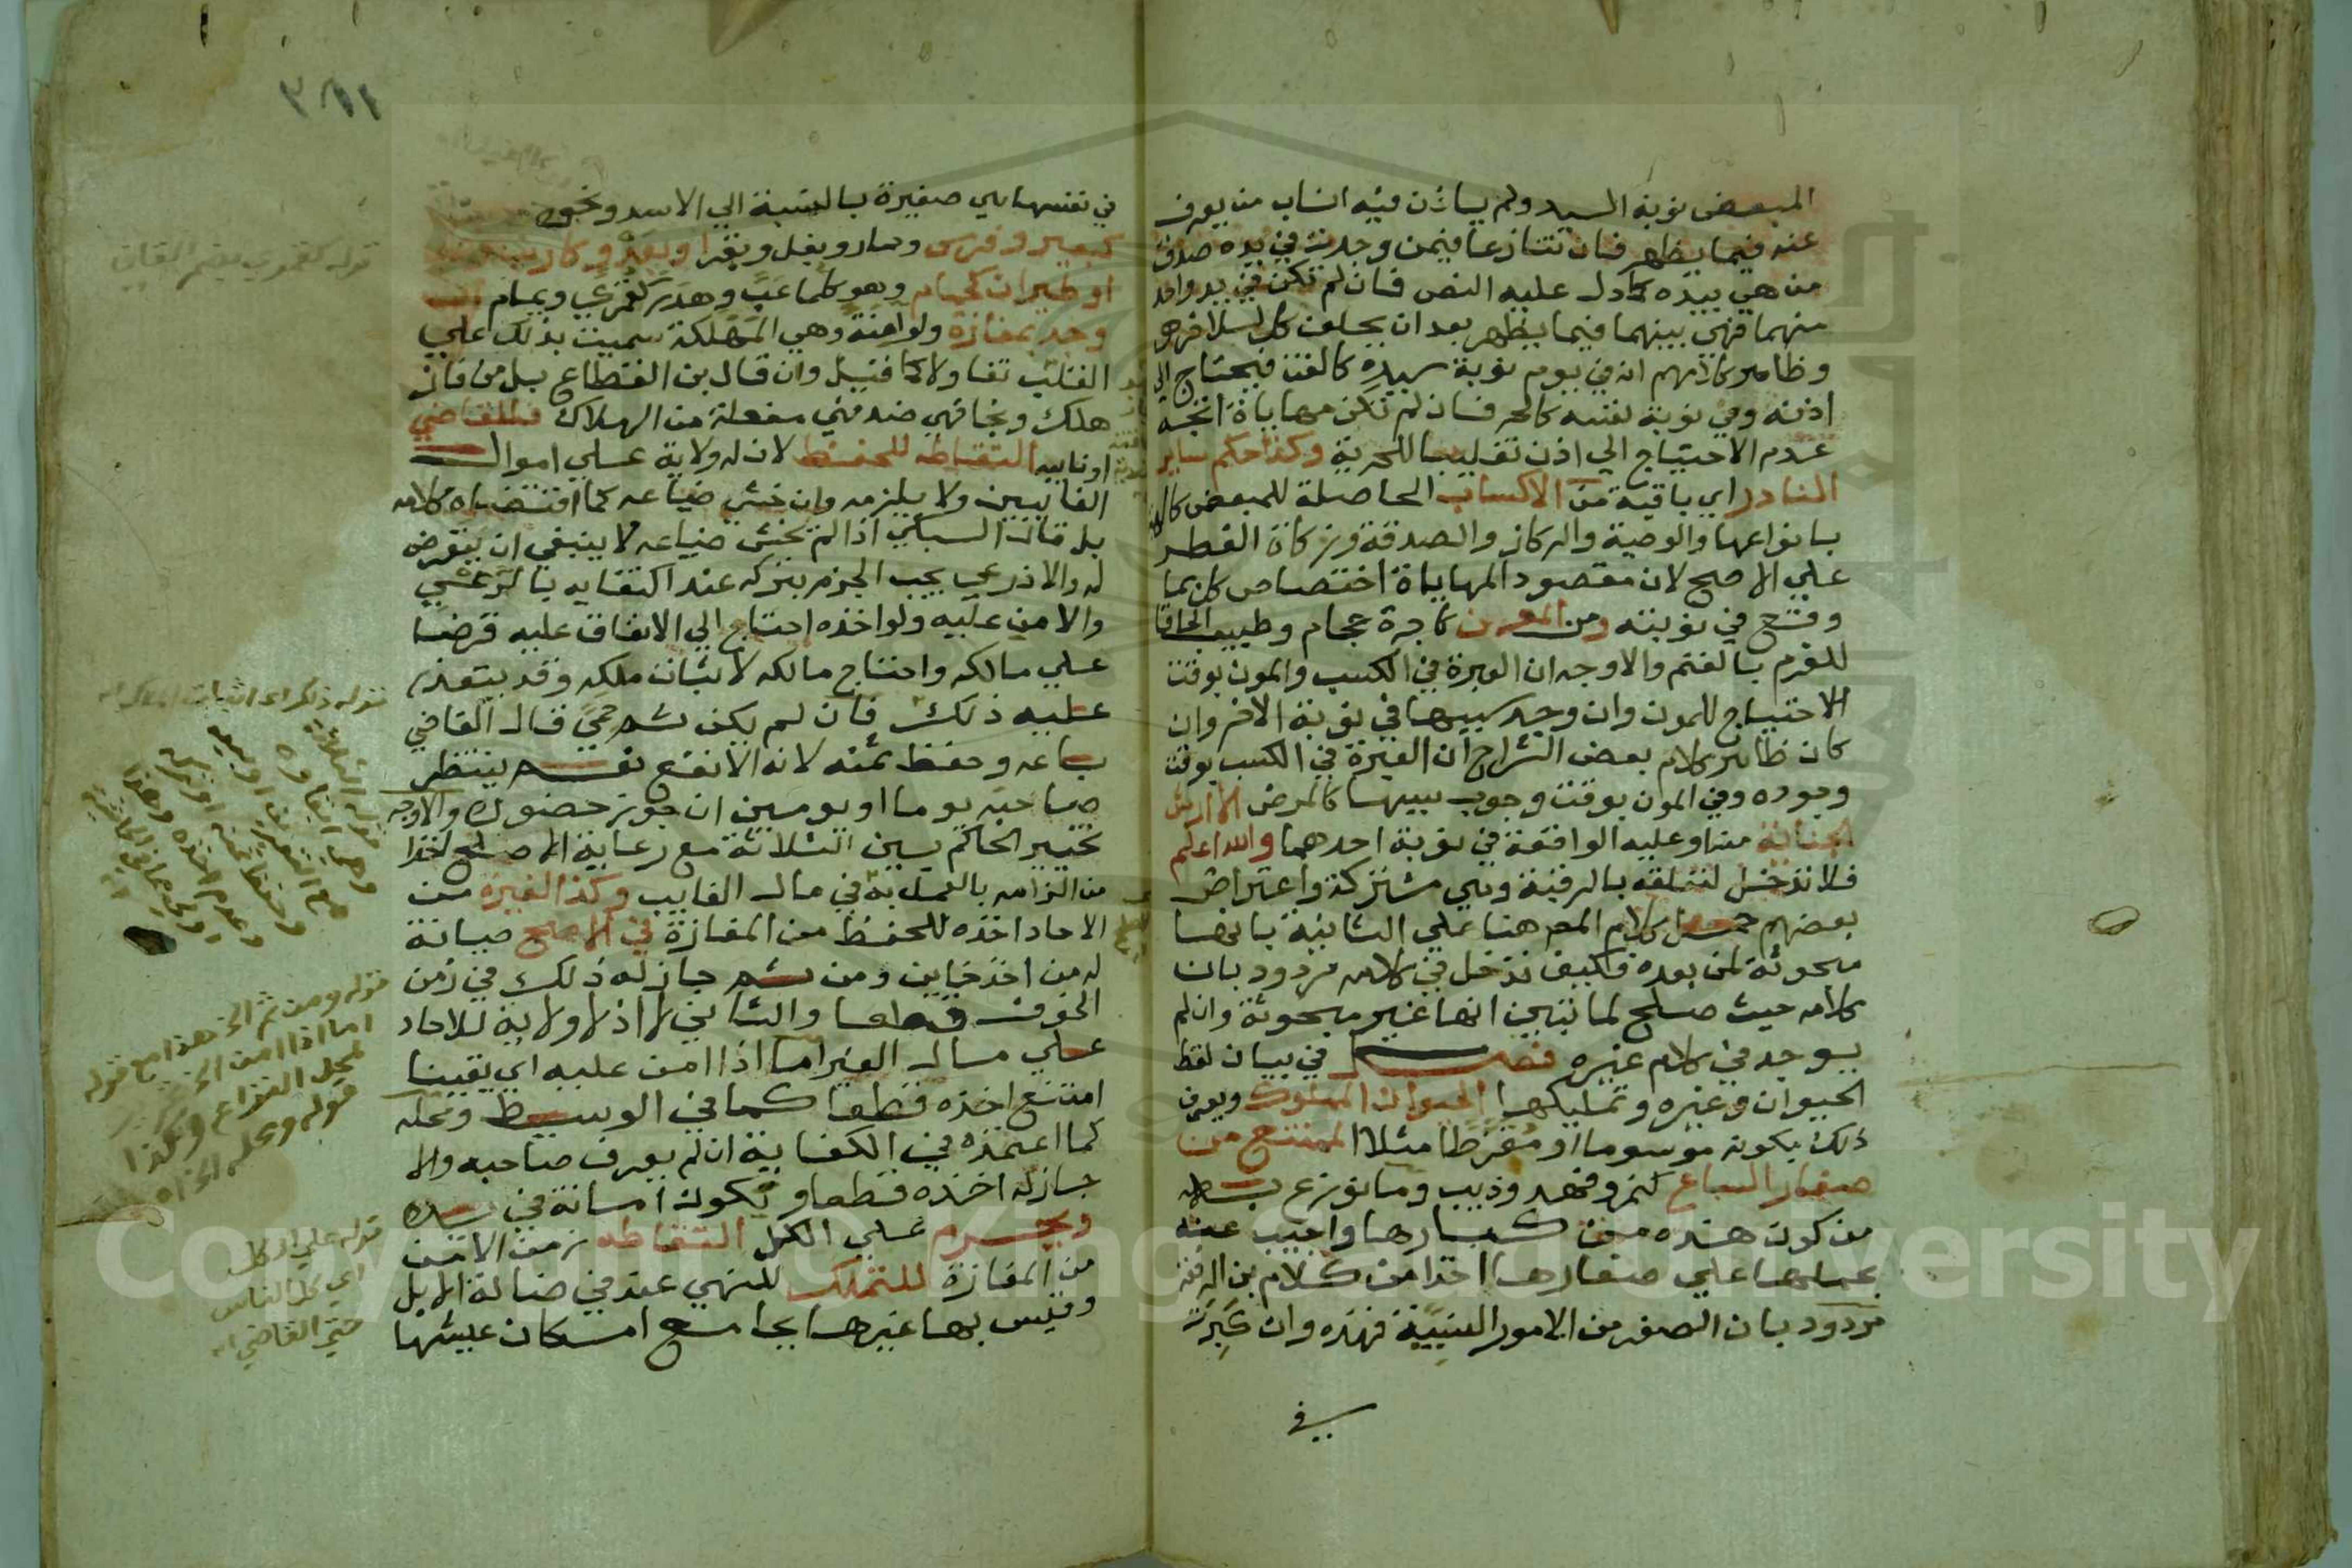 المبعض نوبة السيد ولم يأذن فيه انساب من يعرف
عنه فيما يظهر فان تنازعا فيمن وجدت في يده صدق
من هي بيده كما دل عليه النص فان لم تكن في يد واحد
منهما فهي بينهما فيما يظهر بعد ان يحلف كل للاخر هو
وظاهر كلامهم انه في يوم نوبة سيده كالقن فيحتاج الي
اذنه وفي نوبة نفسه كالحر فان لم تكن مهاياة اتجه
عدم الاحتياج الي اذن تغليبا للحرية وكذا حكم ساير
النادر اي باقية من الاكساب الحاصلة للمبعض كالهبة
بانواعها والوصية والركاز والصدقة وزكاة الفطر
علي الاصح لان مقصود المهاياة اختصاص كل بما
وقع في نوبته ومن المؤن كاجرة حجام وطبيب الحاقا
للغرم بالغنم والاوجه ان العبرة في الكسب والمون بوقت
الاحتياج للمون وان وجد سببها في نوبة الاخر وان
كان ظاهر كلام بعض الشراح ان العبرة في الكسب بوقت
وجوده وفي المون بوقت وجوب سببها كالمرض الا ارش
الجناية منه او عليه الواقعة في نوبة احدهما والله اعلم
فلا تدخل لتعلقه بالرقبة وهي مشتركة واعتراض
بعضهم حمل كلام المص هنا علي الثانية بانها
مبحوثة لمن بعده فكيف تدخل في كلامه مردود بان
كلامه حيث صلح لما تبين انها غير مبحوثة وان لم
يوجد في كلام غيره فصل في بيان لقط
الحيوان وغيره وتمليكها الحيوان المملوك ويعرف
ذلك بكونه موسوما او مقرطا مثلا الممتنع من
صغار السباع كنمر وفهد وذيب وما نوزع به
من كون هذه من كبارها واجيب عنه
بحملها علي صغارها اخذا من كلام بن الرفعة
مردود بان الصغر من الامور النسبية فهذه وان كبرت
في
في نفسها هي صغيرة بالنسبة الي الاسد ونحوه
كبعير وفرس وحمار وبغل وبقر او بعدو كارنب
او طيران كحمام وهو كلما عب وهدر كقمري ويمام ان
وجد بمفازة ولو امنة وهي المهلكة سميت بذلك علي
القلب تفاولا كما قيل وان قال بن القطاع بل من فاز
هلك ونجا فهي ضد فهي مفعلة من الهلاك فللقاضي
او نايبه التقاطه للحفظ لان له ولاية علي اموال
الغايبين ولا يلزمه وان خشي ضياعه كما اقتضاه كلامه
بل قال السبكي اذا لم يخش ضياعه لا ينبغي ان يتعرض
له والاذرعي يجب الجزم بتركه عند اكتفايه بالرعي
والامن عليه ولو اخذه احتاج الي الانفاق عليه قرضا
علي مالكه واحتاج مالكه لاثبات ملكه وقد يتعذر
عليه ذلك فان لم يكن ثم حمي قال القاضي
باعه وحفظ ثمنه لانه الانفع نعم ينتظر
صاحبه يوما او يومين ان جوز حضوره والاوجه
تخيير الحاكم بين الثلاثة مع رعاية الاصلح اخذا
من الزامه بالعمل به في مال الغايب وكذا الغيره من
الاحاد اخذه للحفظ من المفازة في الاصح صيانة
له من اخذ خاين ومن ثم جاز له ذلك في زمن
الخوف قطعا والثاني لا اذ لا ولاية للاحاد
علي مال الغير اما اذا امن عليه اي يقينا
امتنع اخذه قطعا كما في الوسيط ومحله
كما اعتمده في الكفاية ان لم يعرف صاحبه والا
جاز له اخذه قطعا وتكون امانة في يده
ويحرم علي الكل التقاطه زمن الامن
من المفازة للتملك للنهي عنه في ضالة الابل
وقيس بها غيرها بجامع امكان عيشها
قوله كقمري بضم القاف
قوله ومن ثم الخ هذا مع قوله
اما اذا امن الخ
لمحل النزاع وكذا
قوله ومحله الخ اه
قوله علي الكل
اي كل الناس
حتي القاضي اه
Copyright © King Saud University